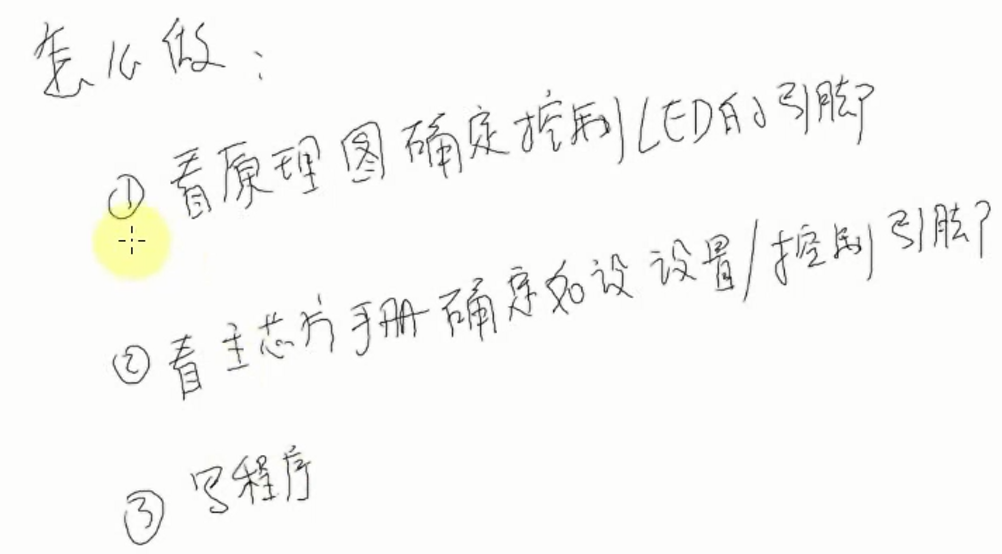 怎么做：
① 看原理图确定控制LED的引脚
② 看主芯片手册确定如设设置/控制引脚
③ 写程序